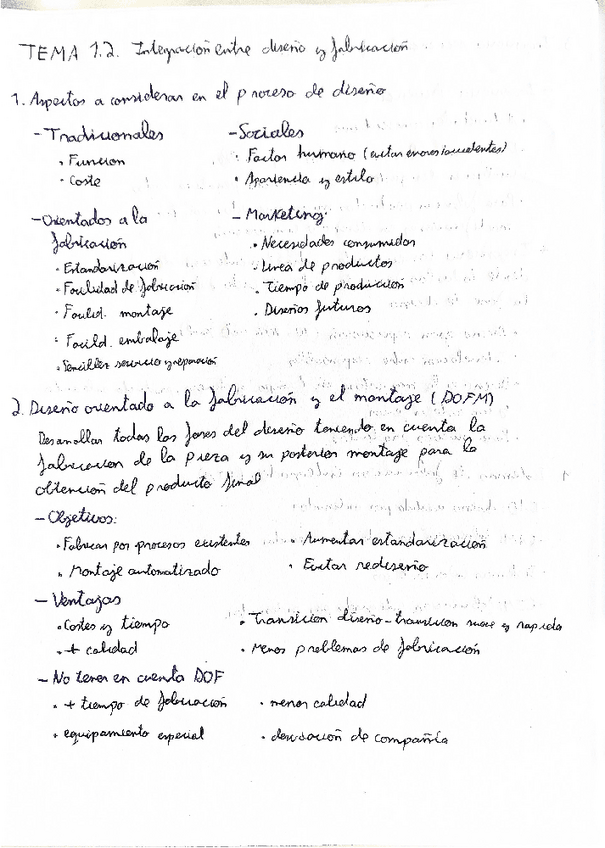 TEMA 1.2. Integración entre diseño y fabricación
1. Aspectos a considerar en el proceso de diseño
- Tradicionales
· Función
· Coste
- Sociales
· Factor humano (evitar errores/accidentes)
· Apariencia y estilo
- Orientados a la
fabricación
· Estandarización
· Facilidad de fabricación
· Facilid. montaje
· Facild. embalaje
· Sencillez servicio y reparación
- Marketing:
· Necesidades consumidor
· Línea de productos
· Tiempo de producción
· Diseños futuros
2. Diseño orientado a la fabricación y el montaje (DOFM)
Desarrollar todas las fases del diseño teniendo en cuenta la
fabricación de la pieza y su posterior montaje para la
obtención del producto final
- Objetivos:
· Fabricar por procesos existentes
· Montaje automatizado
· Aumentar estandarización
· Evitar rediseño
- Ventajas
· Costes y tiempo
· + calidad
· Transición diseño-transición suave y rápida
· Menos problemas de fabricación
- No tener en cuenta DOF
· + tiempo de fabricación
· equipamiento especial
· menor calidad
· desviación de compañía